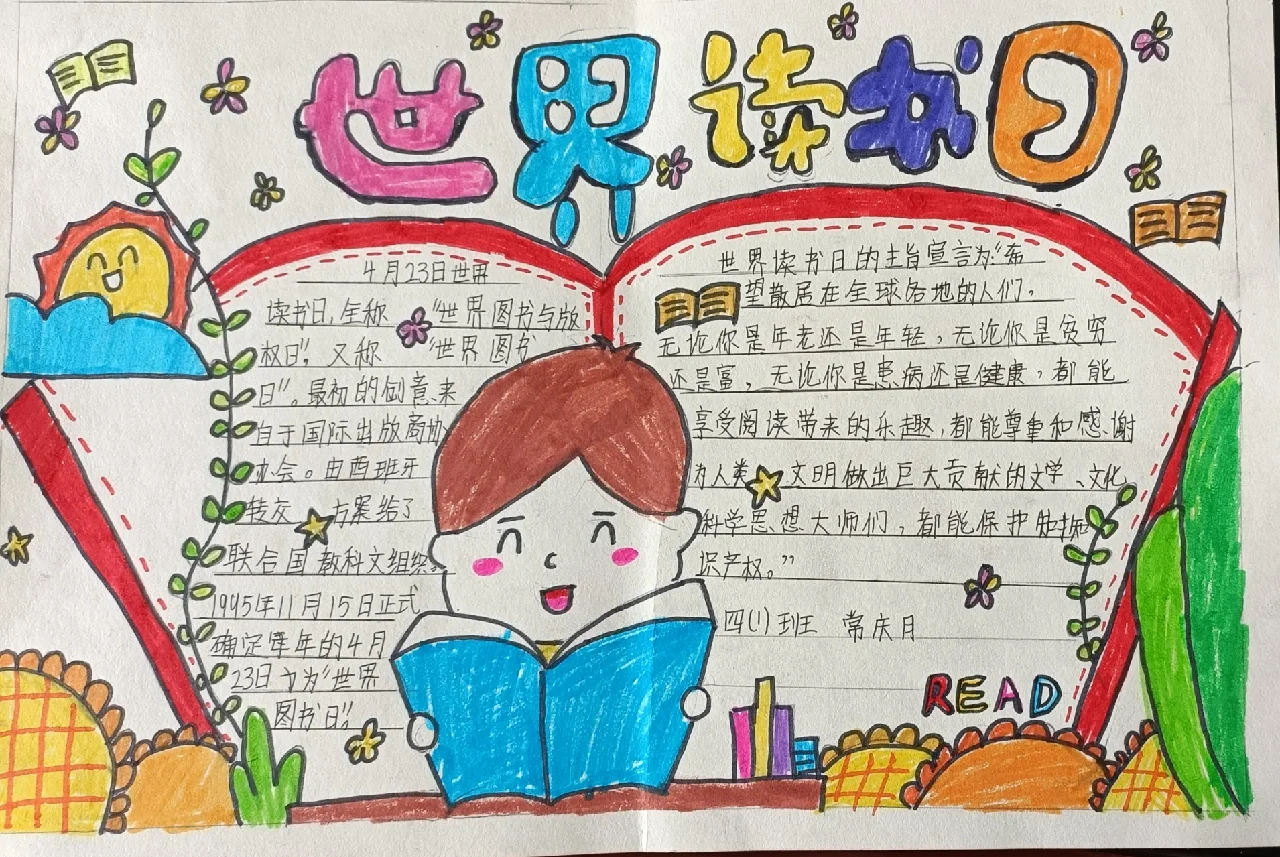 世界读书日
4月23日世界
读书日,全称 "世界图书与版
权日",又称 "世界图书
日"。最初的创意来
自于国际出版商协
办会。由西班牙
转交 方案给了
联合国教科文组织。
1945年11月15日正式
确定每年的4月
23日 为"世界
图书日"。
世界读书日的主旨宣言为:"希
望散居在全球各地的人们,
无论你是年老还是年轻,无论你是贫穷
还是富,无论你是患病还是健康,都能
享受阅读带来的乐趣,都能尊重和感谢
为人类 文明做出巨大贡献的文学、文化
科学思想大师们,都能保护知
识产权。"
四(1)班 常庆月
READ